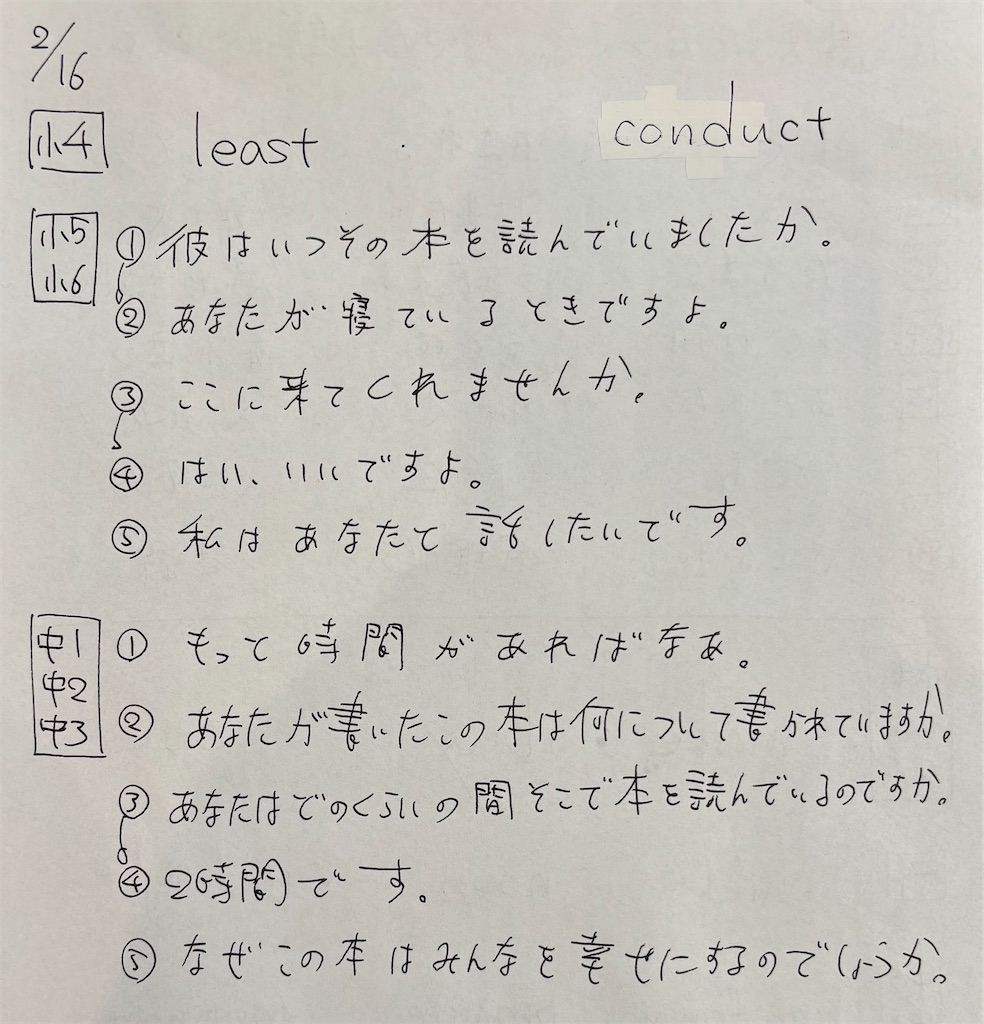 2/16
小4 least conduct
小5 ① 彼はいつその本を読んでいましたか。
小6
② あなたが寝ているときですよ。
③ ここに来てくれませんか。
④ はい、いいですよ。
⑤ 私はあなたと話したいです。
中1 ① もっと時間があればなあ。
中2
中3 ② あなたが書いたこの本は何について書かれていますか。
③ あなたはどのくらいの間そこで本を読んでいるのですか。
④ 2時間です。
⑤ なぜこの本はみんなを幸せにするのでしょうか。